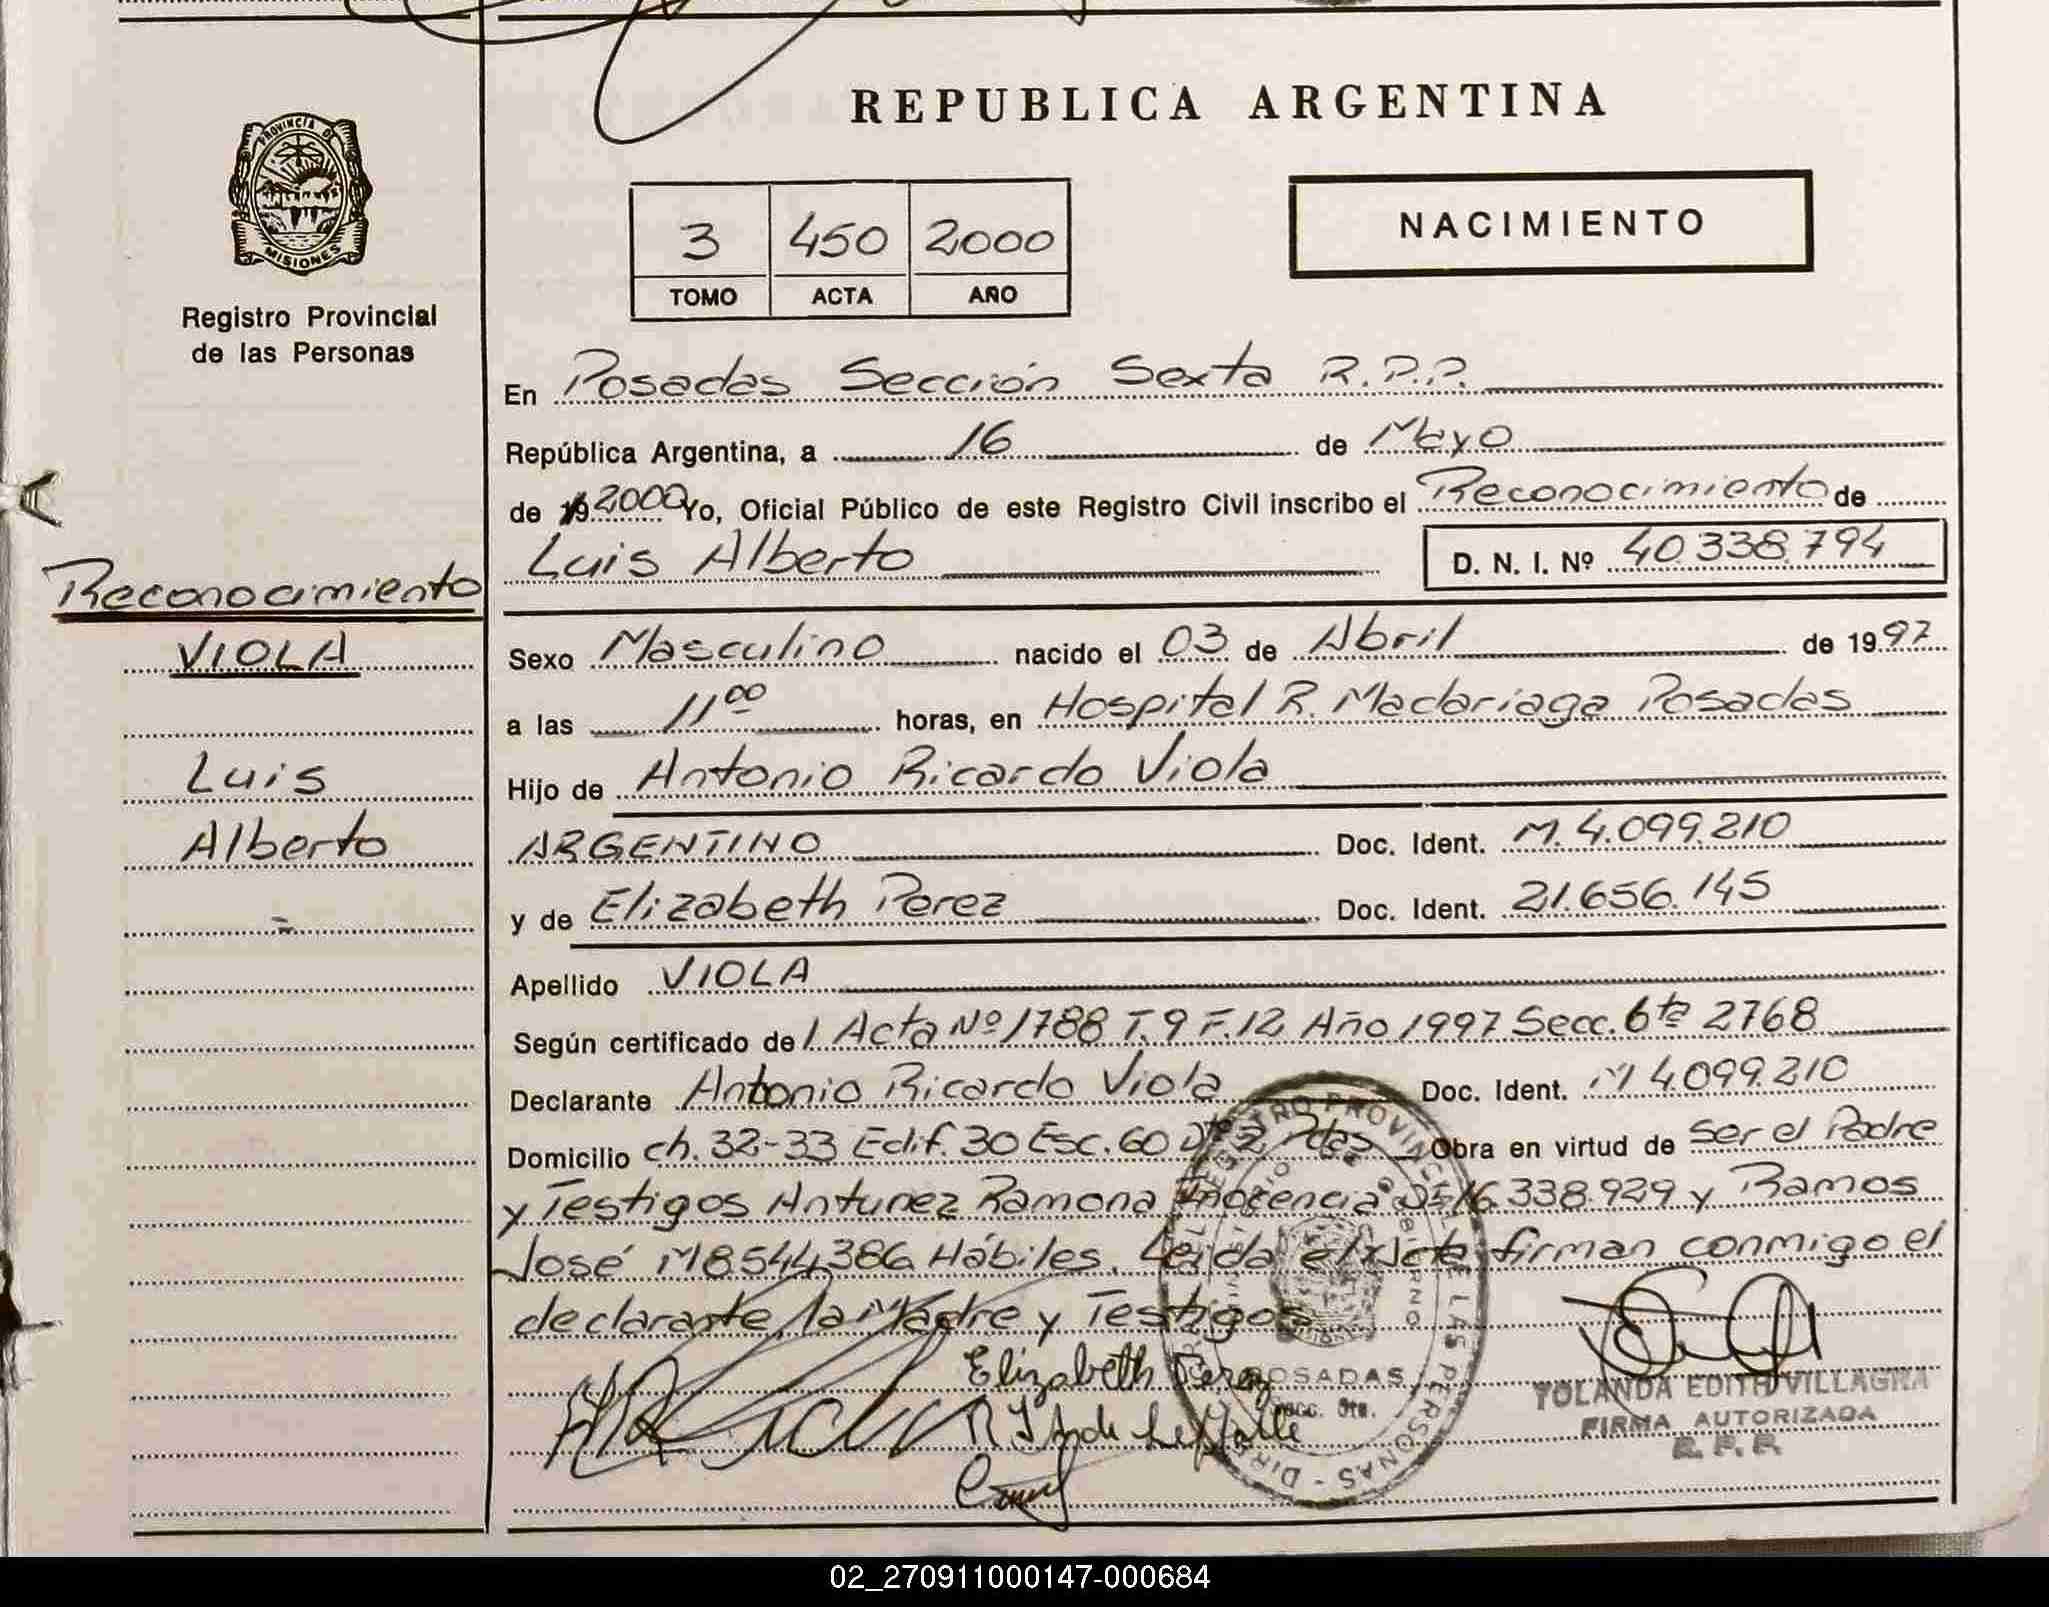 REPUBLICA ARGENTINA
PROVINCIA DE MISIONES
Registro Provincial
de las Personas
3 450 2000
TOMO ACTA AÑO
NACIMIENTO
En Posadas Sección Sexta R.P.P.
República Argentina, a 16 de Mayo
de 19 2000 Yo, Oficial Público de este Registro Civil inscribo el Reconocimiento de
Luis Alberto D. N. I. Nº 40.338.794
Reconocimiento
VIOLA
Luis
Alberto
Sexo Masculino nacido el 03 de Abril de 1997
a las 11⁰⁰ horas, en Hospital R. Madariaga Posadas
Hijo de Antonio Ricardo Viola
ARGENTINO Doc. Ident. M. 4.099.210
y de Elizabeth Perez Doc. Ident. 21.656.145
Apellido VIOLA
Según certificado de l Acta Nº 1788 T.9 F.12 Año 1997 Secc. 6ta 2768
Declarante Antonio Ricardo Viola Doc. Ident. M 4.099.210
Domicilio ch. 32-33 Edif. 30 Esc. 60 Dto 2 Pdas Obra en virtud de ser el Padre
y Testigos Antunez Ramona Inocencia 338.929 y Ramos
José M8.544.386 Hábiles. Leida el Acta firman conmigo el
declarante, la Madre y Testigos
Elizabeth Perez
POSADAS
YOLANDA EDITH VILLAGRA
FIRMA AUTORIZADA
R. P. P.
02_270911000147-000684